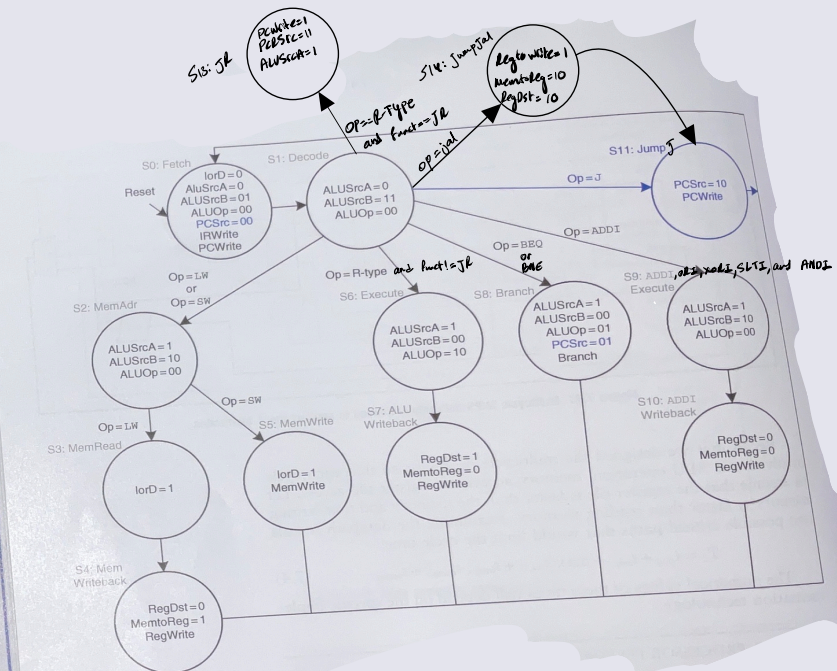 S13: JR
PCWrite=1
PCRSrc=11
ALUSrcA=1
S14: JumpJal
RegtoWrite=1
MemtoReg=10
RegDst=10
OP==R-Type
and funct==JR
OP=jal
S0: Fetch
Reset
IorD=0
AluSrcA=0
ALUSrcB=01
ALUOp=00
PCSrc=00
IRWrite
PCWrite
S1: Decode
ALUSrcA=0
ALUSrcB=11
ALUOp=00
Op=J
S11: Jump J
PCSrc=10
PCWrite
Op=LW
or
Op=SW
Op=R-type and funct!=JR
Op=BEQ
or
BNE
Op=ADDI
S2: MemAdr
ALUSrcA=1
ALUSrcB=10
ALUOp=00
S6: Execute
ALUSrcA=1
ALUSrcB=00
ALUOp=10
S8: Branch
ALUSrcA=1
ALUSrcB=00
ALUOp=01
PCSrc=01
Branch
S9: ADDI, ORI, XORI, SLTI, and ANDI
Execute
ALUSrcA=1
ALUSrcB=10
ALUOp=00
Op=LW
Op=SW
S3: MemRead
IorD=1
S5: MemWrite
IorD=1
MemWrite
S7: ALU
Writeback
RegDst=1
MemtoReg=0
RegWrite
S10: ADDI
Writeback
RegDst=0
MemtoReg=0
RegWrite
S4: Mem
Writeback
RegDst=0
MemtoReg=1
RegWrite